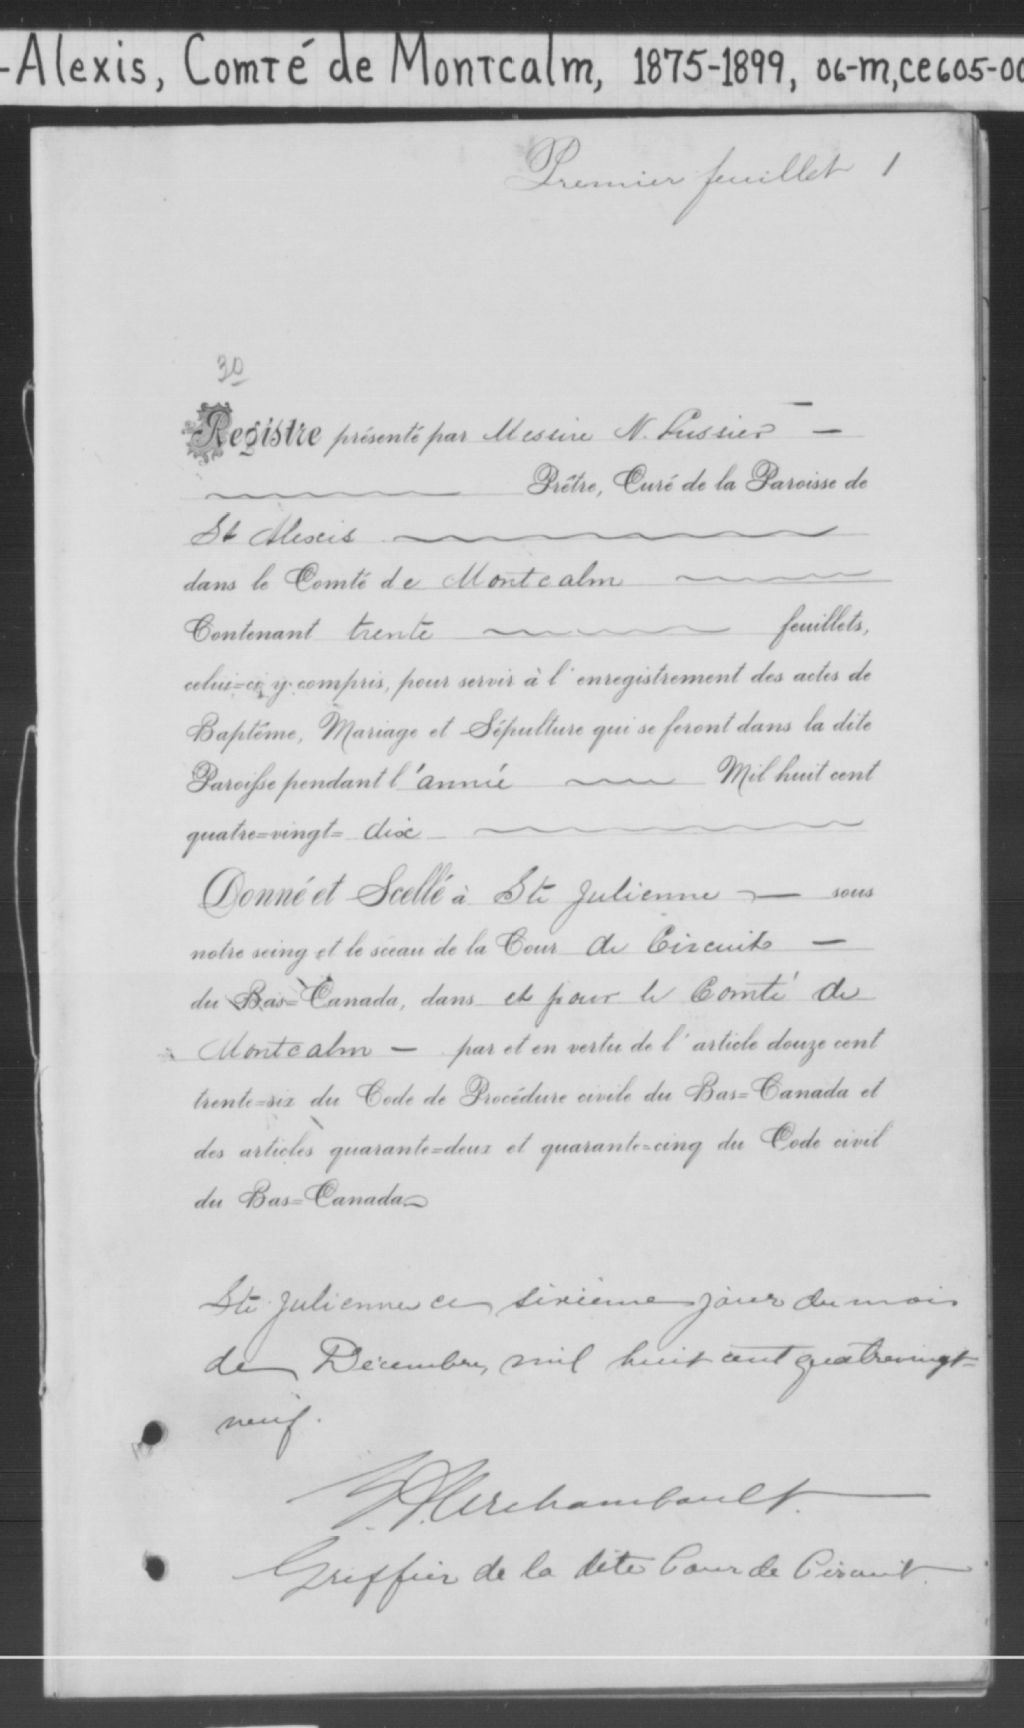 -Alexis, Comté de Montcalm, 1875-1899, 06-M, CE605-00
Premier feuillet 1
30
Registre présenté par Messire N. Lussier
Prêtre, Curé de la Paroisse de
St Alexis
dans le Comté de Montcalm
Contenant trente feuillets,
celui=ci y compris, pour servir à l'enregistrement des actes de
Baptême, Mariage et Sépulture qui se feront dans la dite
Paroisse pendant l'année Mil huit cent
quatre=vingt= dix
Donné et Scellé à Ste Julienne sous
notre seing et le sceau de la Cour de Circuit
du Bas=Canada, dans et pour le Comté de
Montcalm par et en vertu de l'article douze cent
trente=six du Code de Procédure civile du Bas=Canada et
des articles quarante=deux et quarante=cinq du Code civil
du Bas=Canada
Ste Julienne ce sixième jour du mois
de Décembre, mil huit cent quatrevingt-
neuf.
Archambault
Greffier de la dite Cour de Circuit.